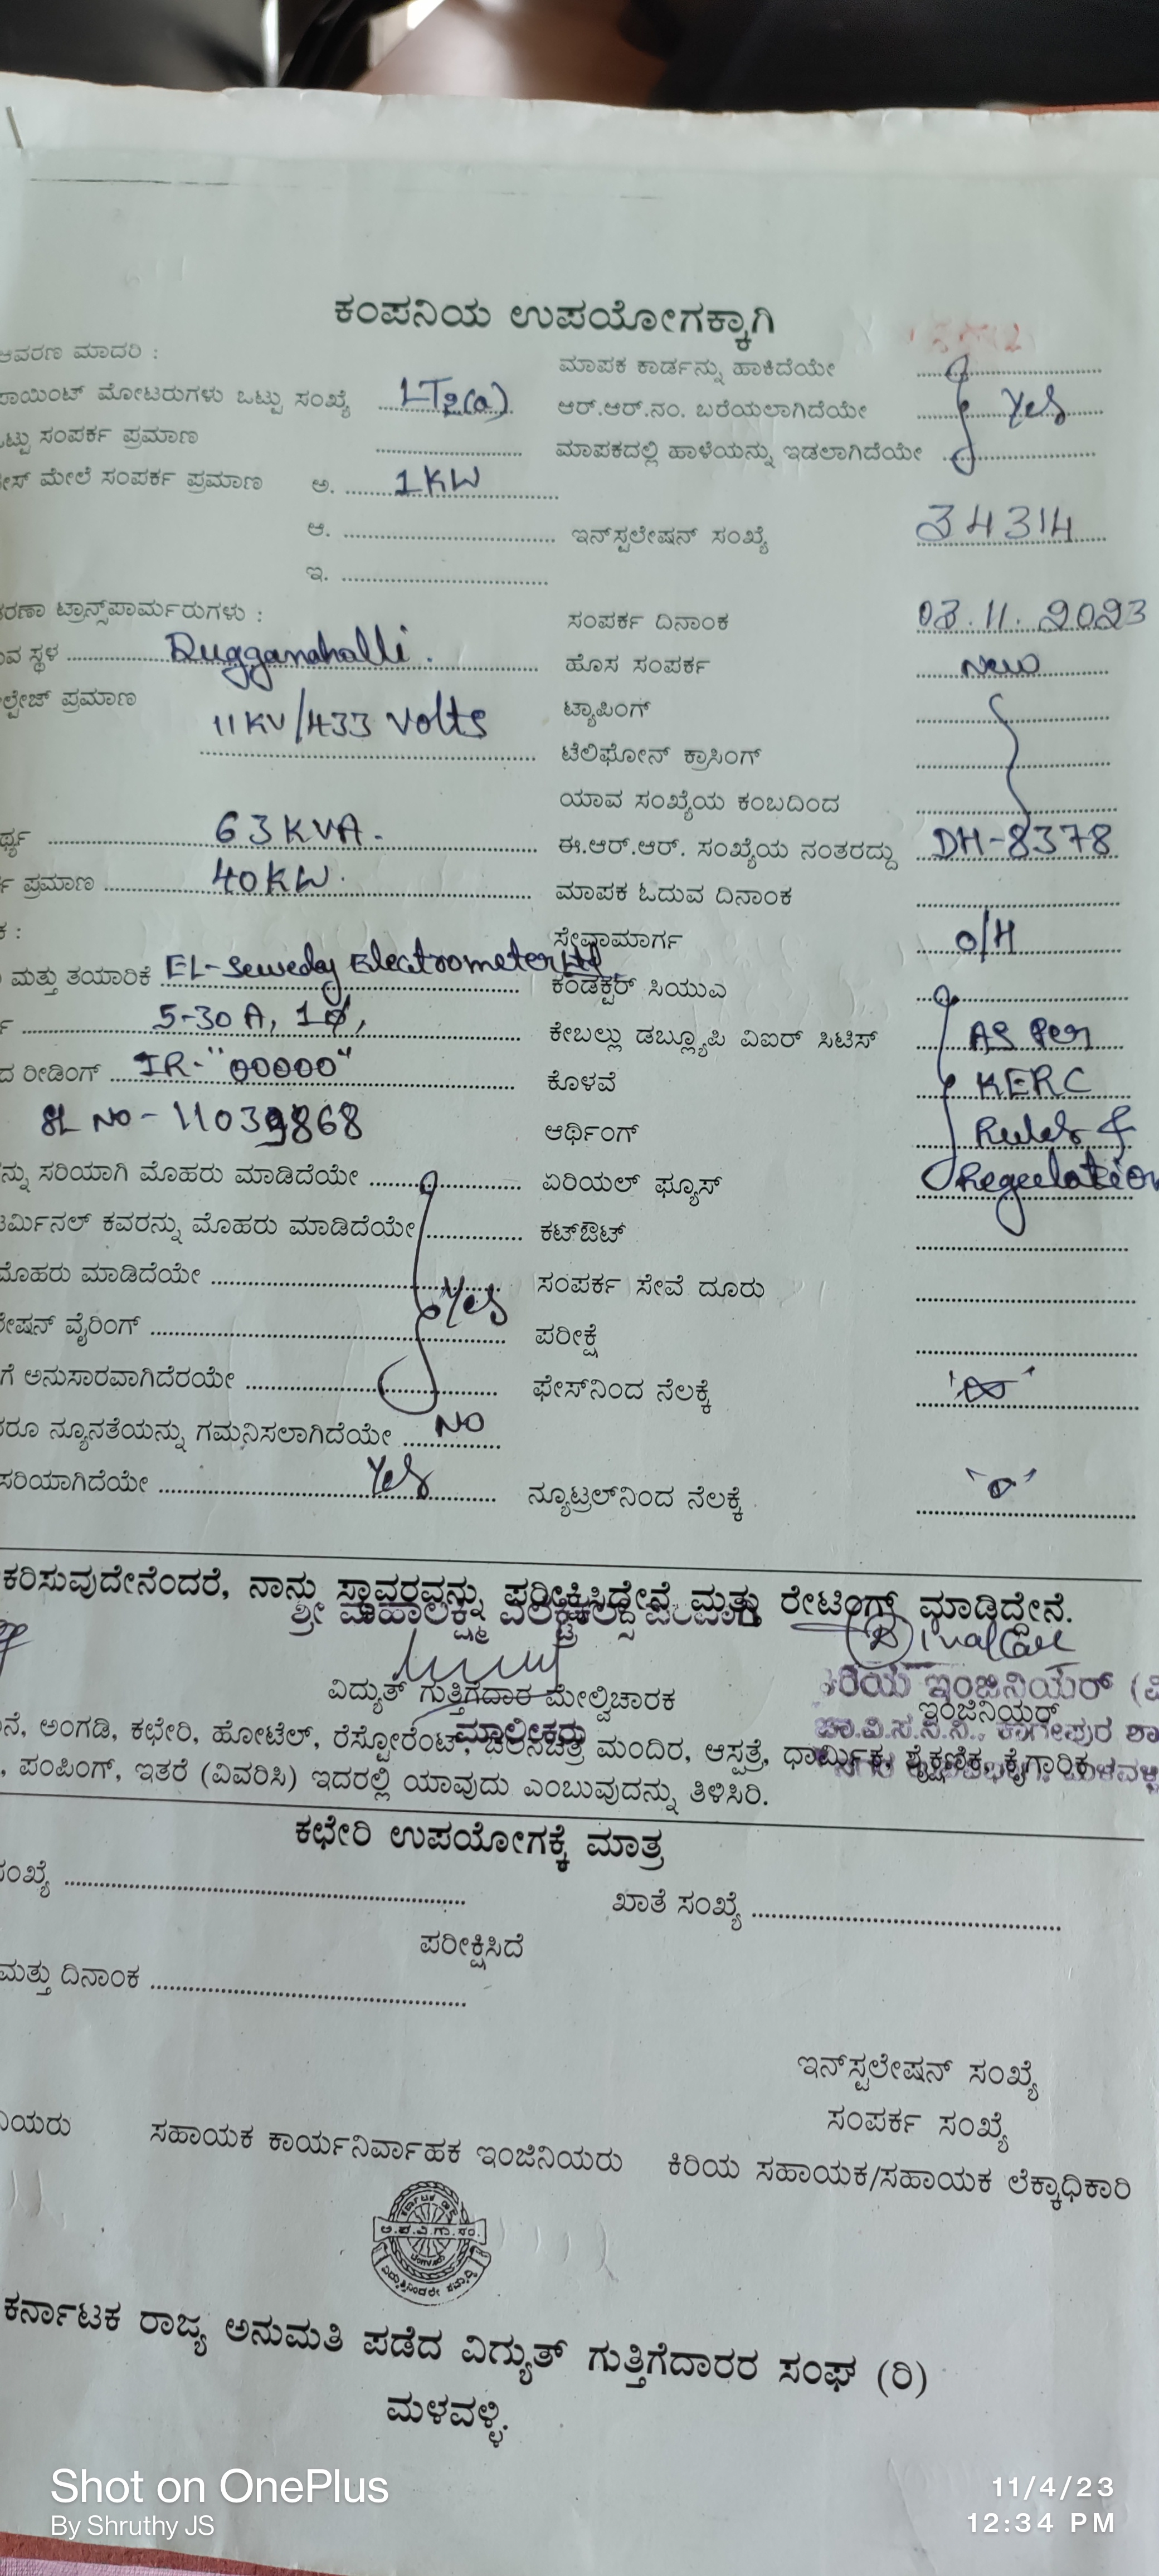 ಕಂಪನಿಯ ಉಪಯೋಗಕ್ಕಾಗಿ
ಆವರಣ ಮಾದರಿ :
ಮಾಪಕ ಕಾರ್ಡನ್ನು ಹಾಕಿದೆಯೇ
ಪಾಯಿಂಟ್ ಮೋಟರುಗಳು ಒಟ್ಟು ಸಂಖ್ಯೆ LT2(a) ಆರ್.ಆರ್.ನಂ. ಬರೆಯಲಾಗಿದೆಯೇ Yes
ಒಟ್ಟು ಸಂಪರ್ಕ ಪ್ರಮಾಣ ಮಾಪಕದಲ್ಲಿ ಹಾಳೆಯನ್ನು ಇಡಲಾಗಿದೆಯೇ
ಮೇಲೆ ಸಂಪರ್ಕ ಪ್ರಮಾಣ ಅ. 1KW
ಆ. ಇನ್‌ಸ್ಟಲೇಷನ್ ಸಂಖ್ಯೆ 34314
ಇ.
ಟ್ರಾನ್ಸ್‌ಪಾರ್ಮರುಗಳು : ಸಂಪರ್ಕ ದಿನಾಂಕ 03.11.2023
ಸ್ಥಳ Dugganahalli. ಹೊಸ ಸಂಪರ್ಕ New
ಪ್ರಮಾಣ 11KV/433 Volts ಟ್ಯಾಪಿಂಗ್
ಟೆಲಿಫೋನ್ ಕ್ರಾಸಿಂಗ್
ಯಾವ ಸಂಖ್ಯೆಯ ಕಂಬದಿಂದ
63KVA. ಈ.ಆರ್.ಆರ್. ಸಂಖ್ಯೆಯ ನಂತರದ್ದು DH-8378
ಪ್ರಮಾಣ 40KW. ಮಾಪಕ ಓದುವ ದಿನಾಂಕ
ಸೇವಾಮಾರ್ಗ O/H
ಮತ್ತು ತಯಾರಿಕೆ EL-Sewedy Electrometer Ltd ಕಂಡಕ್ಟರ್ ಸಿಯುಎ
5-30 A, 1ϕ, ಕೇಬಲ್ಲು ಡಬ್ಲ್ಯೂಪಿ ವಿಐರ್ ಸಿಟಿಸ್ As Per
ರೀಡಿಂಗ್ IR-"00000" ಕೊಳವೆ KERC
SL NO-11039868 ಆರ್ಥಿಂಗ್ Rules &
ಸರಿಯಾಗಿ ಮೊಹರು ಮಾಡಿದೆಯೇ ಏರಿಯಲ್ ಫ್ಯೂಸ್ Regulation
ಕವರನ್ನು ಮೊಹರು ಮಾಡಿದೆಯೇ ಕಟ್‌ಔಟ್
ಮೊಹರು ಮಾಡಿದೆಯೇ Yes ಸಂಪರ್ಕ ಸೇವೆ ದೂರು
ವೈರಿಂಗ್ ಪರೀಕ್ಷೆ
ಅನುಸಾರವಾಗಿದೆರಯೇ ಫೇಸ್‌ನಿಂದ ನೆಲಕ್ಕೆ
ನ್ಯೂನತೆಯನ್ನು ಗಮನಿಸಲಾಗಿದೆಯೇ NO
ಸರಿಯಾಗಿದೆಯೇ Yes ನ್ಯೂಟ್ರಲ್‌ನಿಂದ ನೆಲಕ್ಕೆ
ನಾನು ಸ್ಥಾವರವನ್ನು ಪರೀಕ್ಷಿಸಿದ್ದೇನೆ ಮತ್ತು ರೇಟಿಂಗ್ ಮಾಡಿದ್ದೇನೆ.
ವಿದ್ಯುತ್ ಗುತ್ತಿಗೆದಾರ ಮೇಲ್ವಿಚಾರಕ ಇಂಜಿನಿಯರ್
ಮಾಲೀಕರು
ಅಂಗಡಿ, ಕಛೇರಿ, ಹೋಟೆಲ್, ರೆಸ್ಟೋರೆಂಟ್, ಚಲನಚಿತ್ರ ಮಂದಿರ, ಆಸ್ಪತ್ರೆ, ಧಾರ್ಮಿಕ, ಶೈಕ್ಷಣಿಕ, ಕೈಗಾರಿಕ
, ಪಂಪಿಂಗ್, ಇತರೆ (ವಿವರಿಸಿ) ಇದರಲ್ಲಿ ಯಾವುದು ಎಂಬುವುದನ್ನು ತಿಳಿಸಿರಿ.
ಕಛೇರಿ ಉಪಯೋಗಕ್ಕೆ ಮಾತ್ರ
ಸಂಖ್ಯೆ ಖಾತೆ ಸಂಖ್ಯೆ
ಪರೀಕ್ಷಿಸಿದೆ
ಮತ್ತು ದಿನಾಂಕ
ಇನ್‌ಸ್ಟಲೇಷನ್ ಸಂಖ್ಯೆ
ಸಂಪರ್ಕ ಸಂಖ್ಯೆ
ಸಹಾಯಕ ಕಾರ್ಯನಿರ್ವಾಹಕ ಇಂಜಿನಿಯರು ಕಿರಿಯ ಸಹಾಯಕ/ಸಹಾಯಕ ಲೆಕ್ಕಾಧಿಕಾರಿ
ಅ.ಪ.ವಿ.ಗು.ಸಂ.
ಕರ್ನಾಟಕ ರಾಜ್ಯ ಅನುಮತಿ ಪಡೆದ ವಿಗ್ಯುತ್ ಗುತ್ತಿಗೆದಾರರ ಸಂಘ (ರಿ)
ಮಳವಳ್ಳಿ.
Shot on OnePlus
By Shruthy JS
11/4/23
12:34 PM